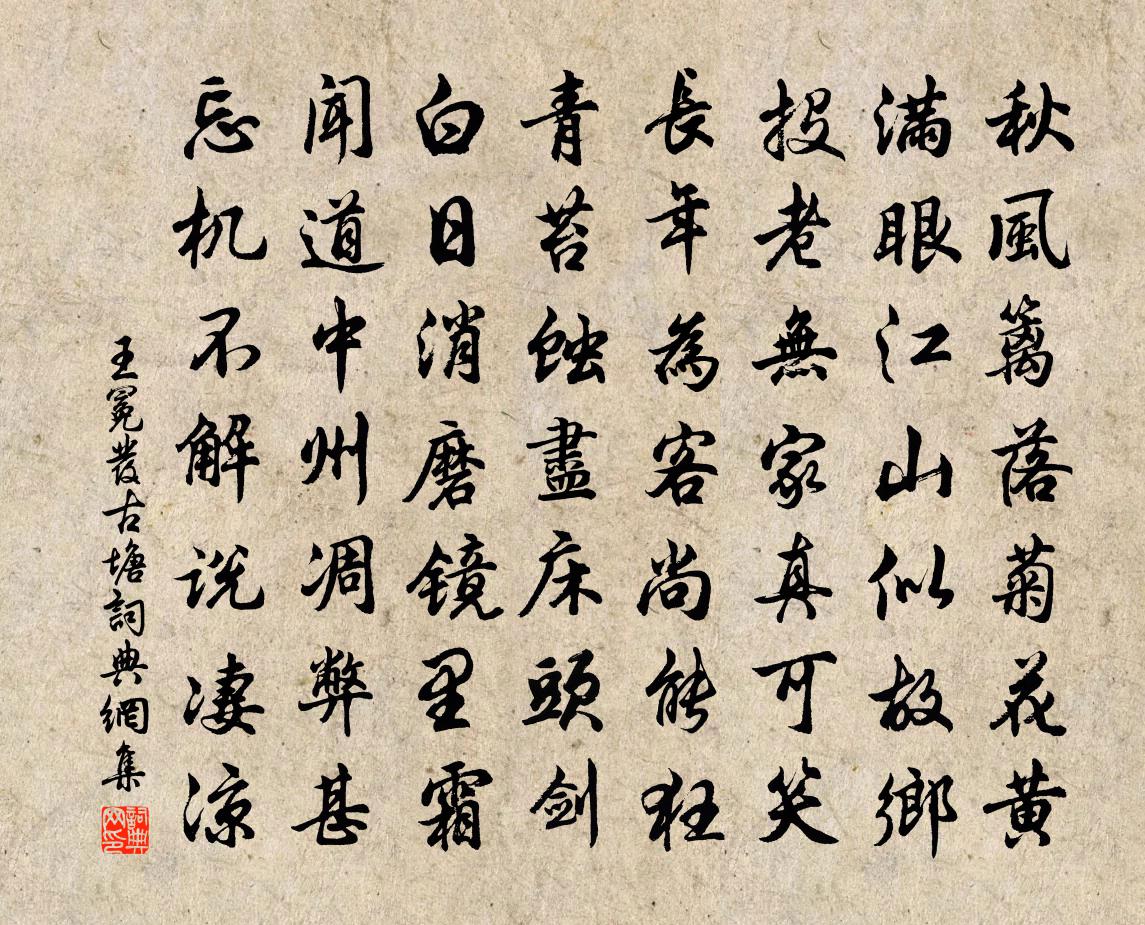 秋風籬落菊花黄
滿眼江山似故鄉
投老無家真可笑
長年為客尚能狂
青苔蝕盡床頭劍
白日消磨镜里霜
闻道中州凋弊甚
忘机不解说凄凉
王冕發古塘詞典網集
詞典网印